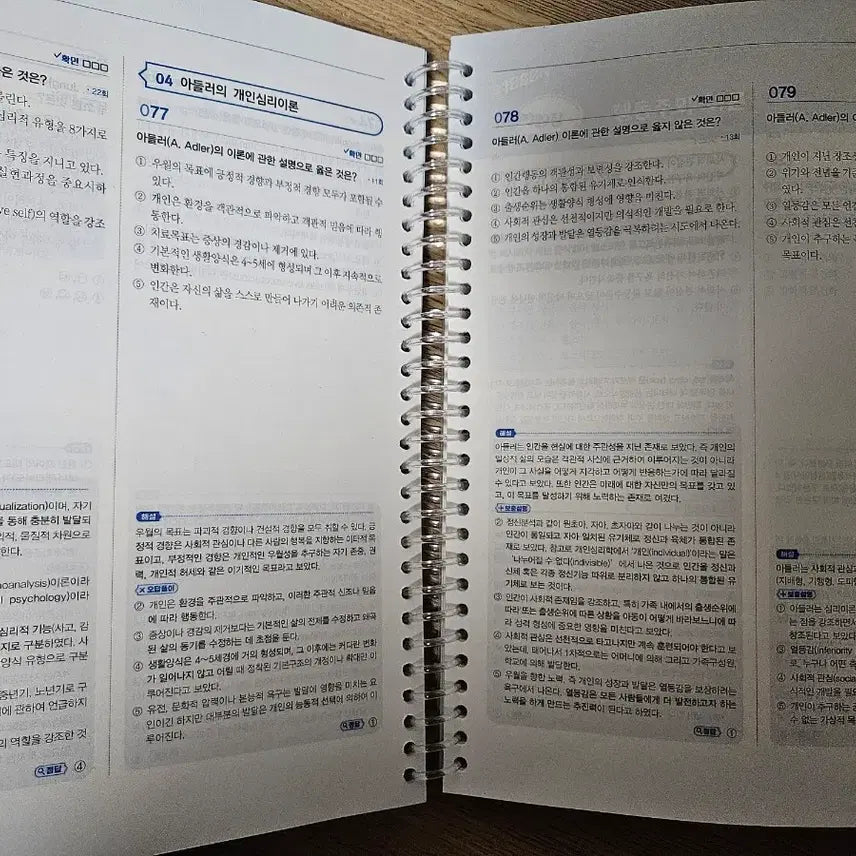 은 것은?
확면 □□□
· 22회
04 아들러의 개인심리이론
077
확면 □□□
아들러(A. Adler)의 이론에 관한 설명으로 옳은 것은?
· 11회
① 우월의 목표에 긍정적 경향과 부정적 경향 모두가 포함될 수
있다.
② 개인은 환경을 객관적으로 파악하고 객관적 믿음에 따라 행
동한다.
③ 치료목표는 증상의 경감이나 제거에 있다.
④ 기본적인 생활양식은 4~5세에 형성되며 그 이후 지속적으로
변화한다.
⑤ 인간은 자신의 삶을 스스로 만들어 나가기 어려운 의존적 존
재이다.
해설
우월의 목표는 파괴적 경향이나 건설적 경향을 모두 취할 수 있다. 긍
정적 경향은 사회적 관심이나 다른 사람의 행복을 지향하는 이타적 목
표이고, 부정적인 경향은 개인적인 우월성을 추구하는 자기 존중, 권
력, 개인적 허세와 같은 이기적인 목표라고 보았다.
오답풀이
② 개인은 환경을 주관적으로 파악하고, 이러한 주관적 신조나 믿음
에 따라 행동한다.
③ 증상이나 경감의 제거보다는 기본적인 삶의 전제를 수정하고 왜곡
된 삶의 동기를 수정하는 데 초점을 둔다.
④ 생활양식은 4~5세경에 거의 형성되며, 그 이후에는 커다란 변화
가 일어나지 않고 어릴 때 정착된 기본구조의 개정이나 확대만 이
루어진다고 보았다.
⑤ 유전, 문화적 압력이나 본능적 욕구는 발달에 영향을 미치는 요
인이긴 하지만 대부분의 발달은 개인의 능동적 선택에 의하여 이
루어진다.
정답 ①
릴린다.
리적 유형을 8가지로
특징을 지니고 있다.
실현과정을 중요시하
ve self)의 역할을 강조
ualization)이며, 자기
통해 충분히 발달되
적, 물질적 차원으로
한다.
oanalysis)이론이라
psychology)이라
심리적 기능(사고, 감
지로 구분하였다. 사
양식 유형으로 구분
중년기, 노년기로 구
에 관하여 언급하지
의 역할을 강조한 것
정답 ④
078
확면 □□□
아들러(A. Adler) 이론에 관한 설명으로 옳지 않은 것은?
· 13회
① 인간행동의 객관성과 보편성을 강조한다.
② 인간을 하나의 통합된 유기체로 인식한다.
③ 출생순위는 생활양식 형성에 영향을 미친다.
④ 사회적 관심은 선천적이지만 의식적인 개발을 필요로 한다.
⑤ 개인의 성장과 발달은 열등감을 극복하려는 시도에서 나온다.
해설
아들러는 인간을 현실에 대한 주관성을 지닌 존재로 보았다. 즉 개인의
일상적 삶의 모습은 객관적 사실에 근거하여 이루어지는 것이 아니라
개인이 그 사실을 어떻게 지각하고 어떻게 반응하는가에 따라 달라질
수 있다고 보았다. 또한 인간은 미래에 대한 자신만의 목표를 갖고 있
고, 이 목표를 달성하기 위해 노력하는 존재로 여겼다.
보충설명
② 정신분석과 같이 원초아, 자아, 초자아와 같이 나누는 것이 아니라
인간이 통일되고 자아 일치된 유기체로 정신과 육체가 통합된 존
재로 보았다. 참고로 개인심리학에서 '개인(individual)'이라는 말은
'나누어질 수 없다(indivisible)' 에서 나온 것으로 인간을 정신과
신체 혹은 각종 정신기능 따위로 분리하지 않고 하나의 통합된 유
기체로 보는 것이다.
③ 인간이 사회적 존재임을 강조하고, 특히 가족 내에서의 출생순위에
따라 또는 출생순위에 따른 상황을 아동이 어떻게 바라보느냐에 따
라 성격 형성에 중요한 영향을 미친다고 보았다.
④ 사회적 관심은 선천적으로 타고나지만 계속 훈련되어야 한다고 보
았는데, 태어나서 1차적으로는 어머니에 의해 그리고 가족구성원,
학교에 의해 발달한다.
⑤ 우월을 향한 노력, 즉 개인의 성장과 발달은 열등감을 보상하려는
욕구에서 나온다. 열등감은 모든 사람들에게 더 발전하고자 하는
노력을 하게 만드는 추진력이 된다고 하였다.
정답 ①
079
아들러(A. Adler)의
① 개인이 지닌 창조
② 위기와 전념을 기
있다.
③ 열등감은 모든 인
④ 사회적 관심은 선
⑤ 개인이 추구하는
목표이다.
해설
아들러는 사회적 관심
(지배형, 기형형, 도피
보충설명
① 아들러는 심리
는 점을 강조하면서
창조된다고 보았다
③ 열등감(inferiority
로, 누구나 어떤 측
④ 사회적 관심(social
식적인 개발을 필
⑤ 개인이 추구하는 궁
수 없는 가상적 목